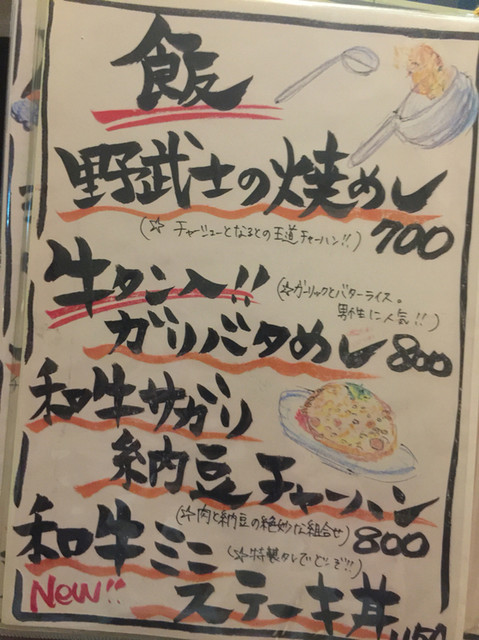 飯
野武士の焼めし
(☆ チャーシューとなるとの王道チャーハン!!) 700
牛タン入!!
(☆ガーリックとバターライス。
男性に人気!!)
ガリバタめし 800
和牛サガリ
納豆チャーハン
(☆肉と納豆の絶妙な組合せ) 800
和牛ミニ
(☆特製タレでどーぞ!!)
New!! ステーキ丼